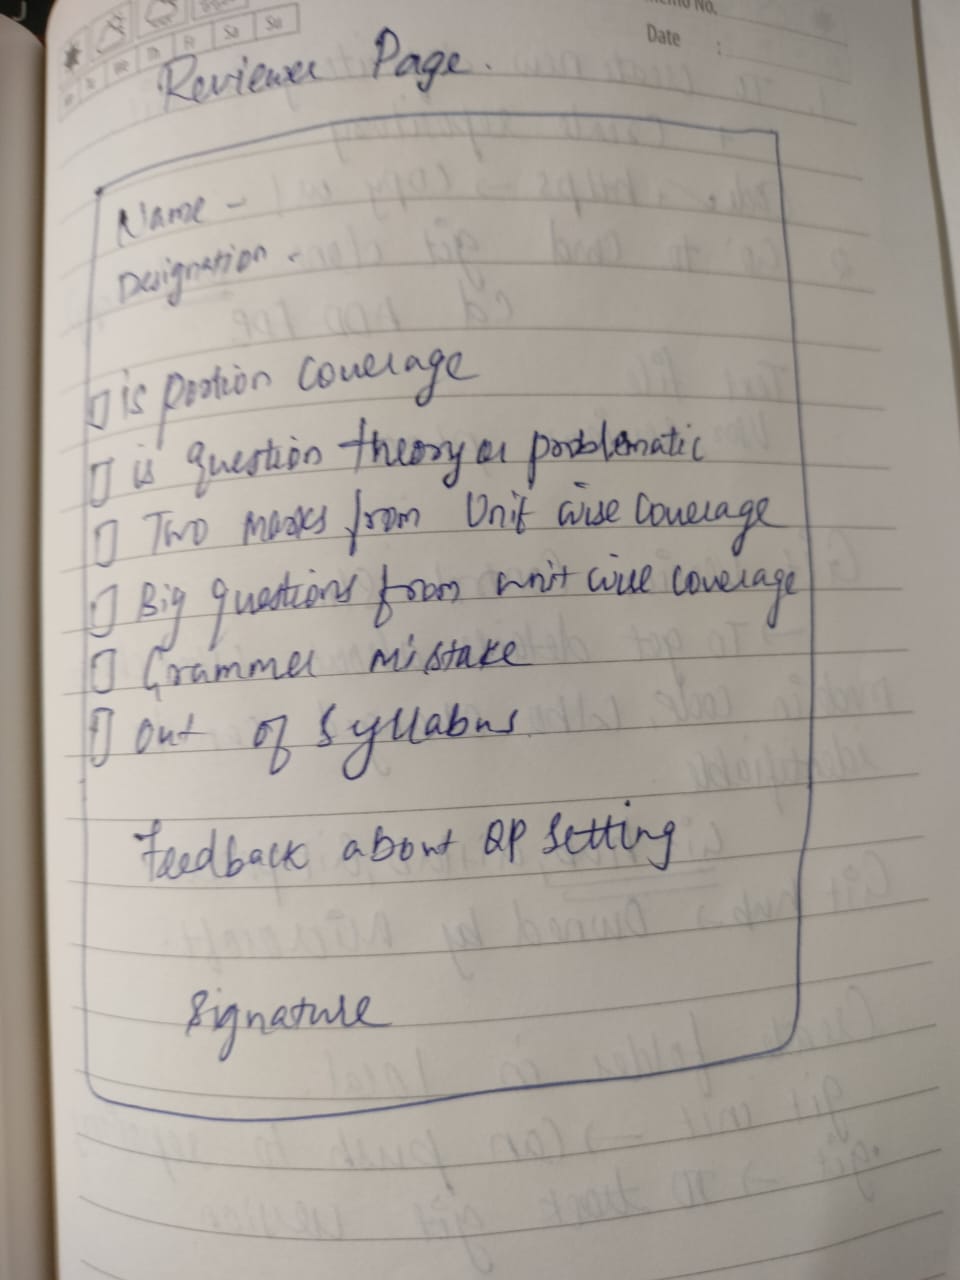 Memo No.
Date :
Th Fr Sa Su
Reviewer Page.
Name -
Designation -
is portion coverage
is question theory or problematic
Two marks from Unit wise coverage
Big questions from unit wise coverage
Grammer mistake
out of syllabus
Feedback about QP setting
Signature